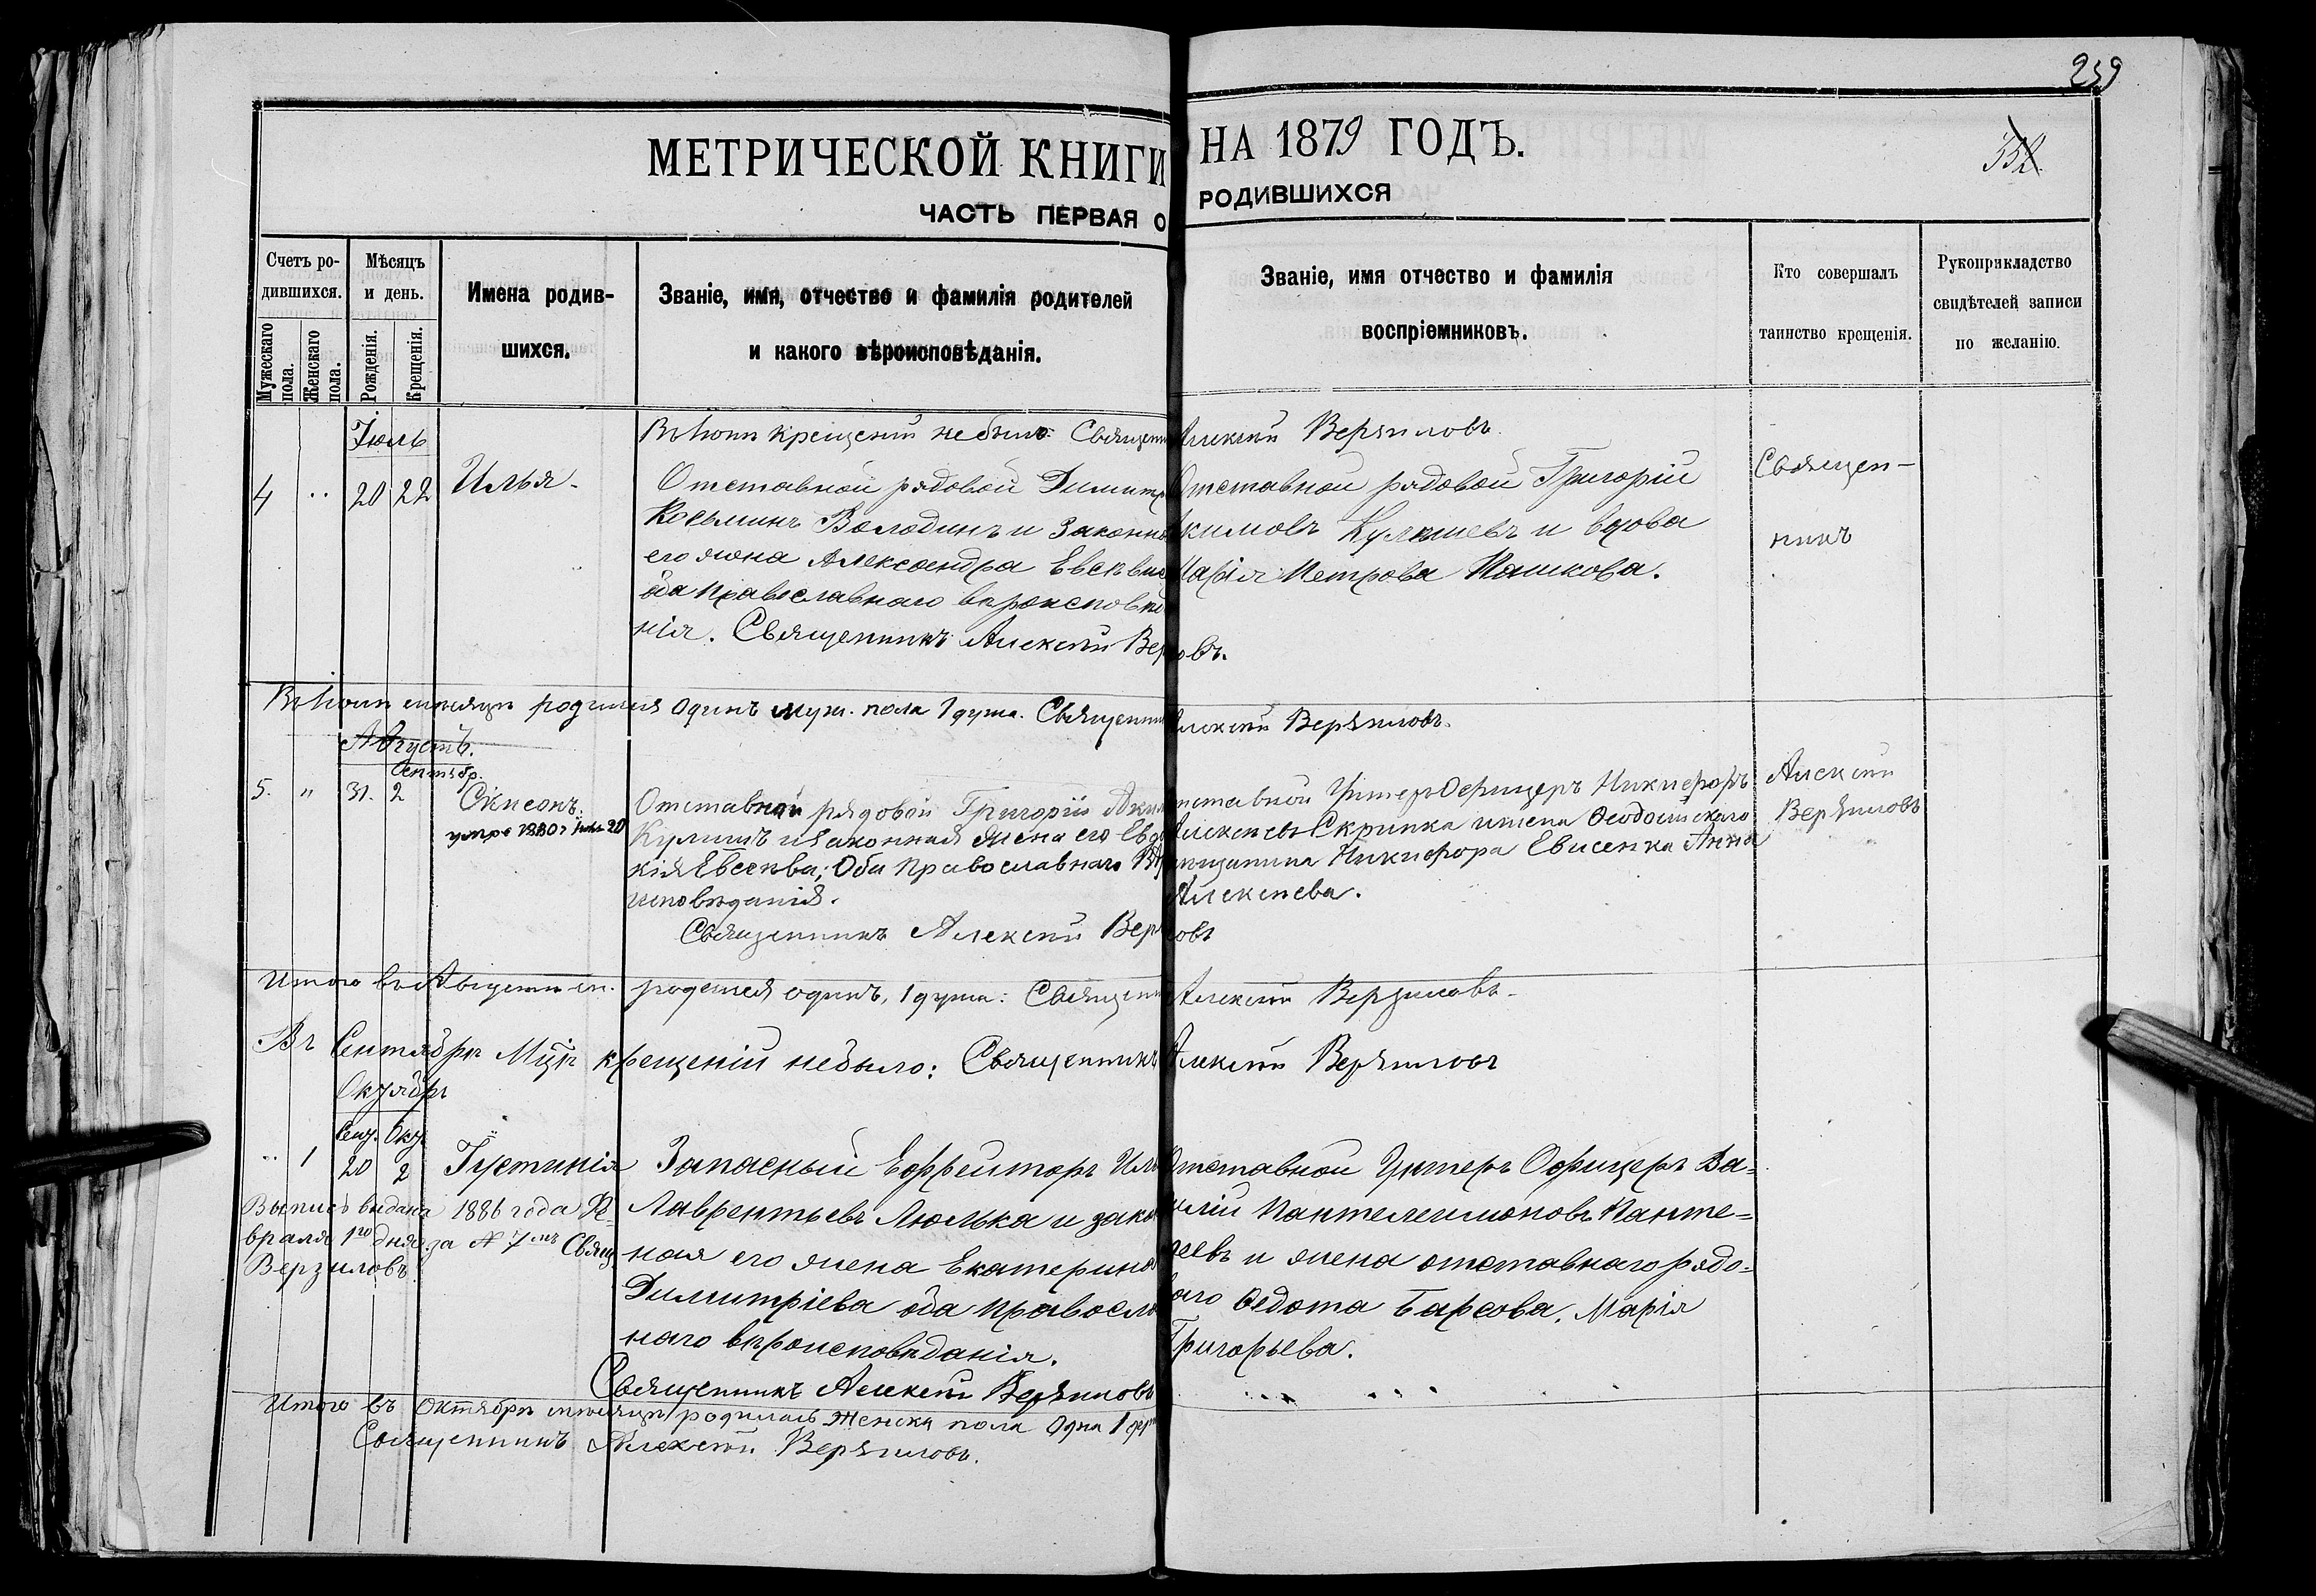 259
МЕТРИЧЕСКОЙ КНИГИ НА 1879 ГОДЪ.
552
ЧАСТЬ ПЕРВАЯ О РОДИВШИХСЯ
Счетъ ро-
дившихся.
Мужескаго пола.
Женскаго пола.
Мѣсяцъ
и день.
Рожденія.
Крещенія.
Имена родив-
шихся.
Званіе, имя, отчество и фамилія родителей
и какого вѣроисповѣданія.
Званіе, имя отчество и фамилія
воспріемниковъ.
Кто совершалъ
таинство крещенія.
Рукоприкладство
свидѣтелей записи
по желанію.
Іюль
крещеній небыло: Священ Алексѣй Верзиловъ
4 " 20 22 Илья.
Отставной рядовой Димитр
Косьминъ Володинъ и законна
его жена Александра Евсѣв
оба православнаго вѣроисповѣ
нія. Священникъ Алексѣй Вер овъ.
Отставной рядовой Григорій
Акимовъ и вдова
Марія Петрова Пашкова.
Священ-
никъ
мѣсяцѣ родился одинъ муж. пола 1 душа. Священни Алексѣй Верзиловъ.
Августъ.
Сентябр.
5. " 31. 2
умре 1880 г
Отставной рядовой Григорій Аки
и законная жена его Евд
кія Евсеева; Оба Православнаго Вѣ
исповѣданія.
Священникъ Алексѣй Вер овъ
Отставной Унтер Офицеръ Никифоръ
Алексѣевъ Скрипка и жена Ѳеодосійскаго
мѣщанина Никифора Евисенка Анна
Алексѣева.
Алексѣй
Верзиловъ
Итого въ Августѣ м. родился одинъ, 1 душа: Священни Алексѣй Верзиловъ.
Въ Сентябрѣ Мцѣ крещеній небыло: Священникъ Алексѣй Верзиловъ
Октябрь
Сент. Окт.
" 1 20 2 Іустинія
Выпись выдана 1886 года Фе-
враля 1го дня за № 7мъ Свящ
Верзиловъ
Запасный Ефрейторъ Иль
Лаврентьевъ Люлька и зако
ная его жена Екатерина
Димитріева оба правосла
наго вѣроисповѣданія.
Священникъ Алексѣй Верзиловъ
Отставной Унтеръ Офицеръ Ва=
силій Пантелеимоновъ Панте=
леевъ и жена отставнаго рядо=
ваго Ѳедота Барсова, Марія
Григорьева.
Итого въ Октябрѣ мѣсяцѣ родилась женска пола Одна 1
Священникъ Алексѣй Верзиловъ.